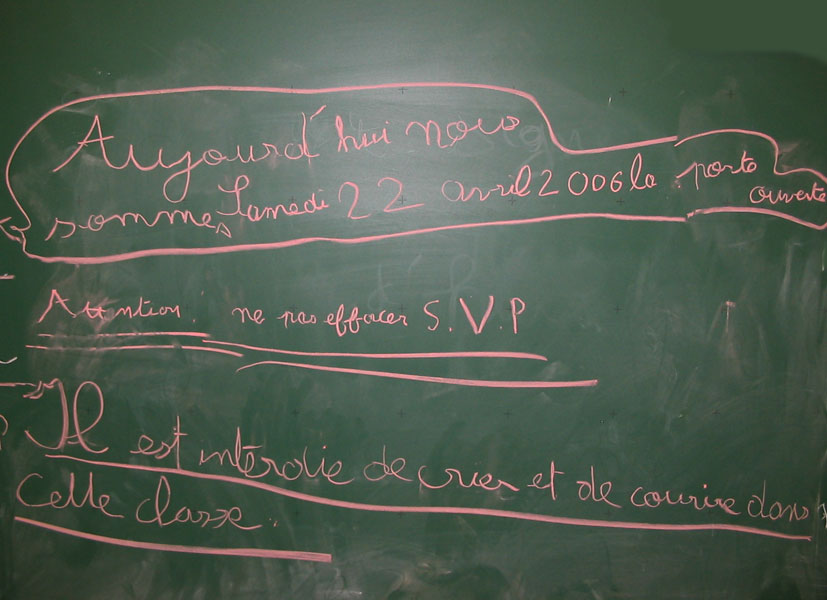 Aujourd'hui nous
sommes Samedi 22 avril 2006 la porte
ouverte
Attention. ne pas effacer S.V.P
Il est interdie de crier et de courire dans
cette classe.